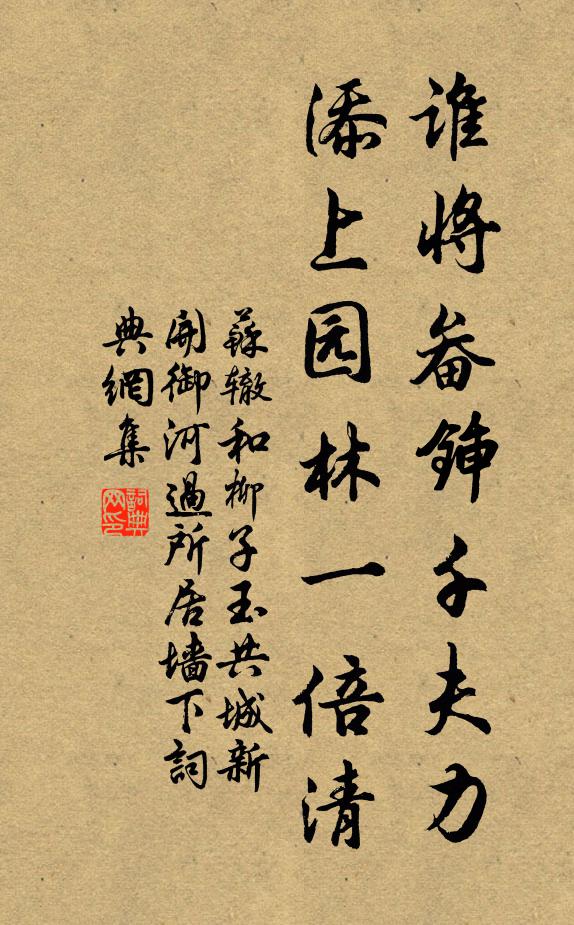 谁将畚锸千夫力
添上园林一倍清
蘇辙和柳子玉共城新
開御河過所居墙下詞
典網集
詞典网印